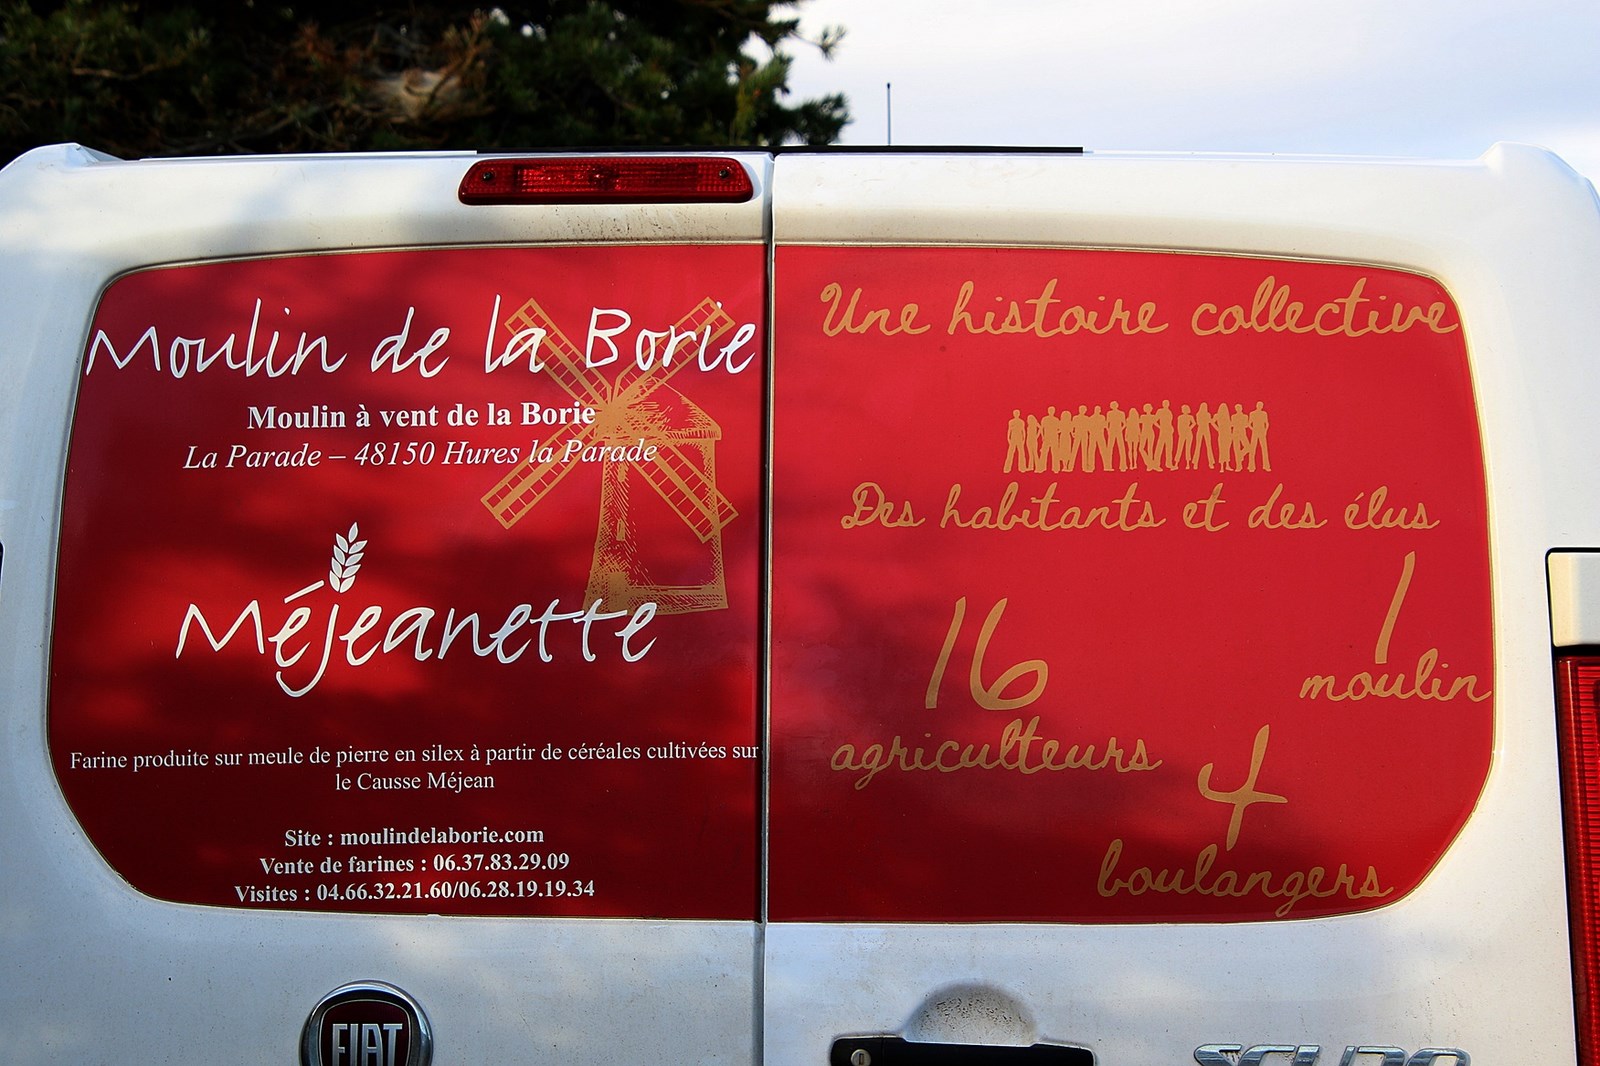 Moulin de la Borie
Moulin à vent de la Borie
La Parade – 48150 Hures la Parade
Méjeanette
Farine produite sur meule de pierre en silex à partir de céréales cultivées sur
le Causse Méjean
Site : moulindelaborie.com
Vente de farines : 06.37.83.29.09
Visites : 04.66.32.21.60/06.28.19.19.34
Une histoire collective
Des habitants et des élus
16
agriculteurs
1
moulin
4
boulangers
FIAT
SCUDO